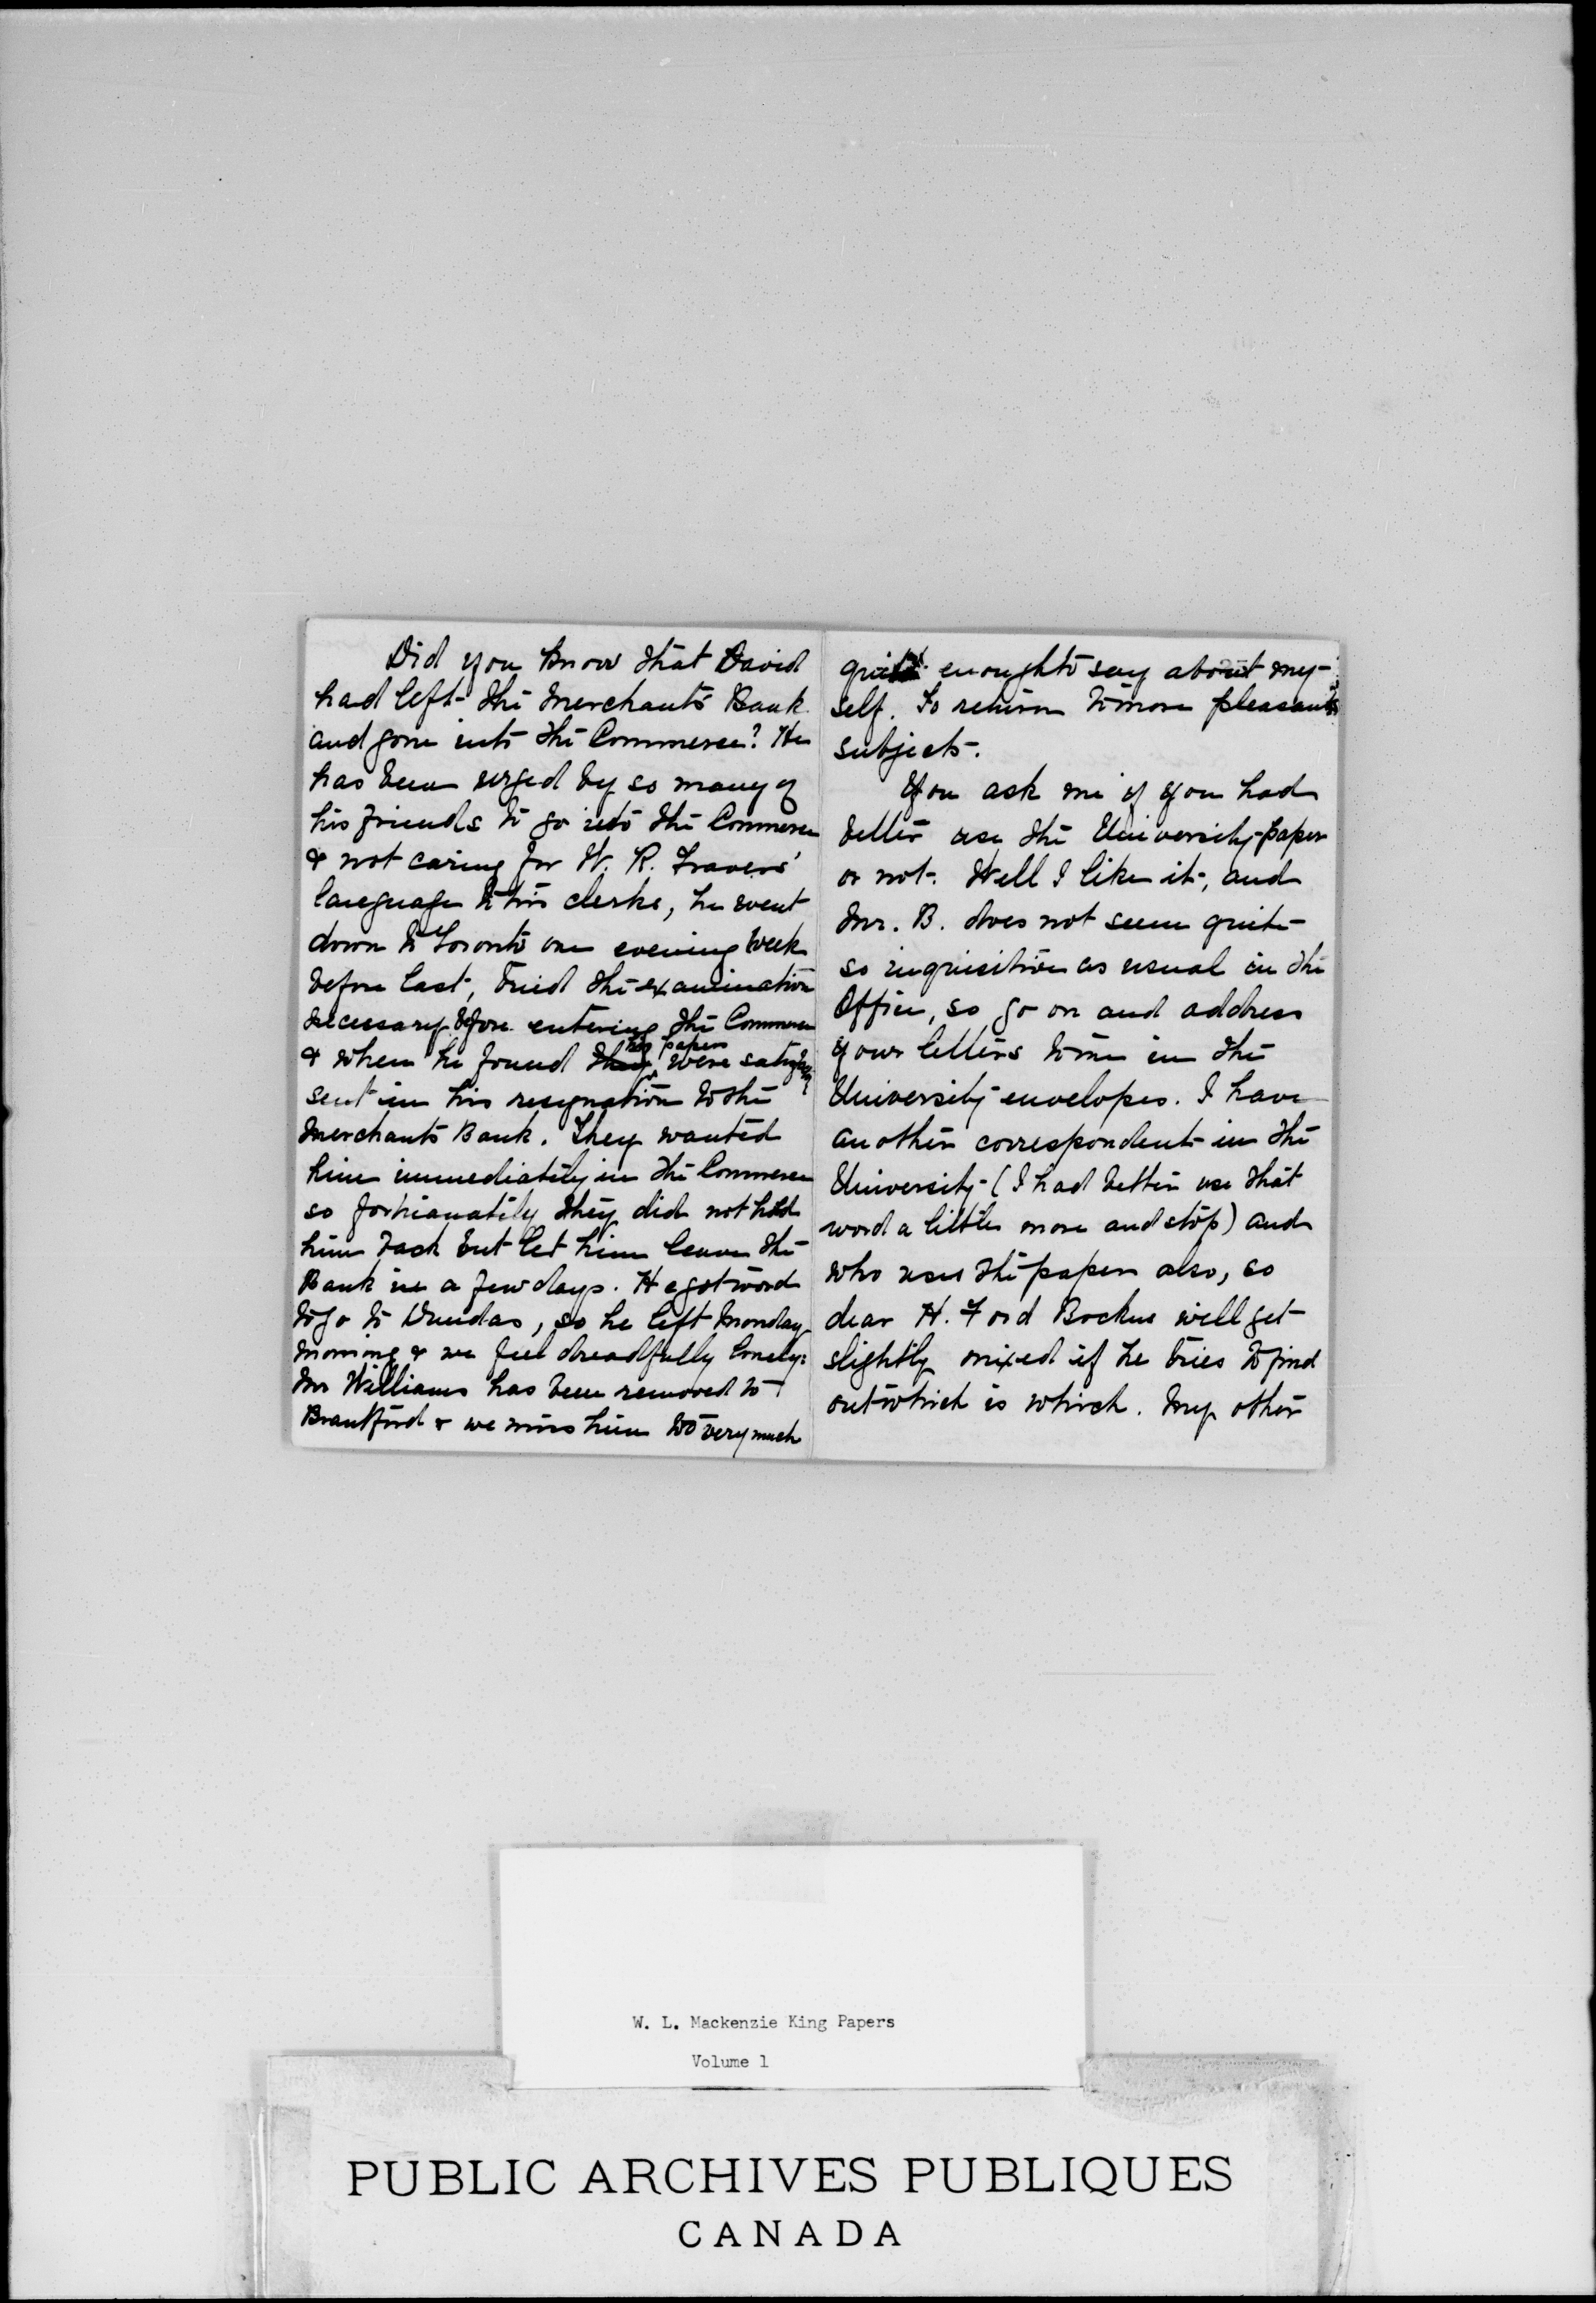 Did you know that David
had left the Merchants Bank
and gone into the Commerce? He
has been urged by so many of
his friends to go into the Commerce
& not caring for W. R. Travers'
language to his clerks, he went
down to Toronto one evening week
before last, tried the examination
necessary before entering the Commerce
& when he found they his papers were satisfactory
sent in his resignation to the
Merchants Bank. They wanted
him immediately in the Commerce
so fortunately they did not hold
him back but let him leave the
Bank in a few days. He got word
to go to Dundas, so he left Monday
morning & we feel dreadfully lonely.
Mr Williams has been removed to
Brantford & we miss him too very much
quite enough to say about my-
self. To return to more pleasant
subjects.
You ask me if you had
better use the University paper
or not. Well I like it, and
Mr. B. does not seem quite
so inquisitive as usual in the
Office, so go on and address
your letters to me in the
University envelopes. I have
another correspondent in the
University (I had better use that
word a little more and stop) and
who uses the paper also, so
dear H. Ford Bockus will get
slightly mixed if he tries to find
out which is which. My other
W. L. Mackenzie King Papers
Volume 1
PUBLIC ARCHIVES PUBLIQUES
CANADA